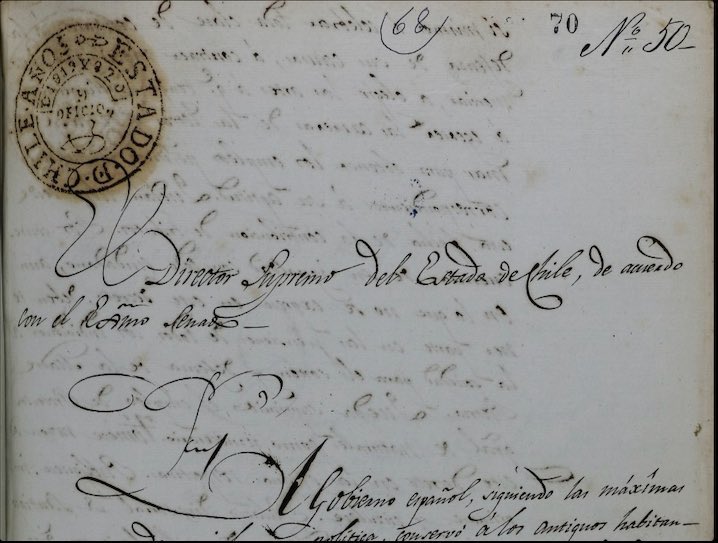 (68) 70 N.º 50-
ESTADO·D·CHILE·AÑOS
D 1819 Y 820
OFICIO
El Director Supremo del Estado de Chile, de acuerdo
con el Exmo Senado—
El Gobierno español, siguiendo las máximas
política, conservó á los antiguos habitan—